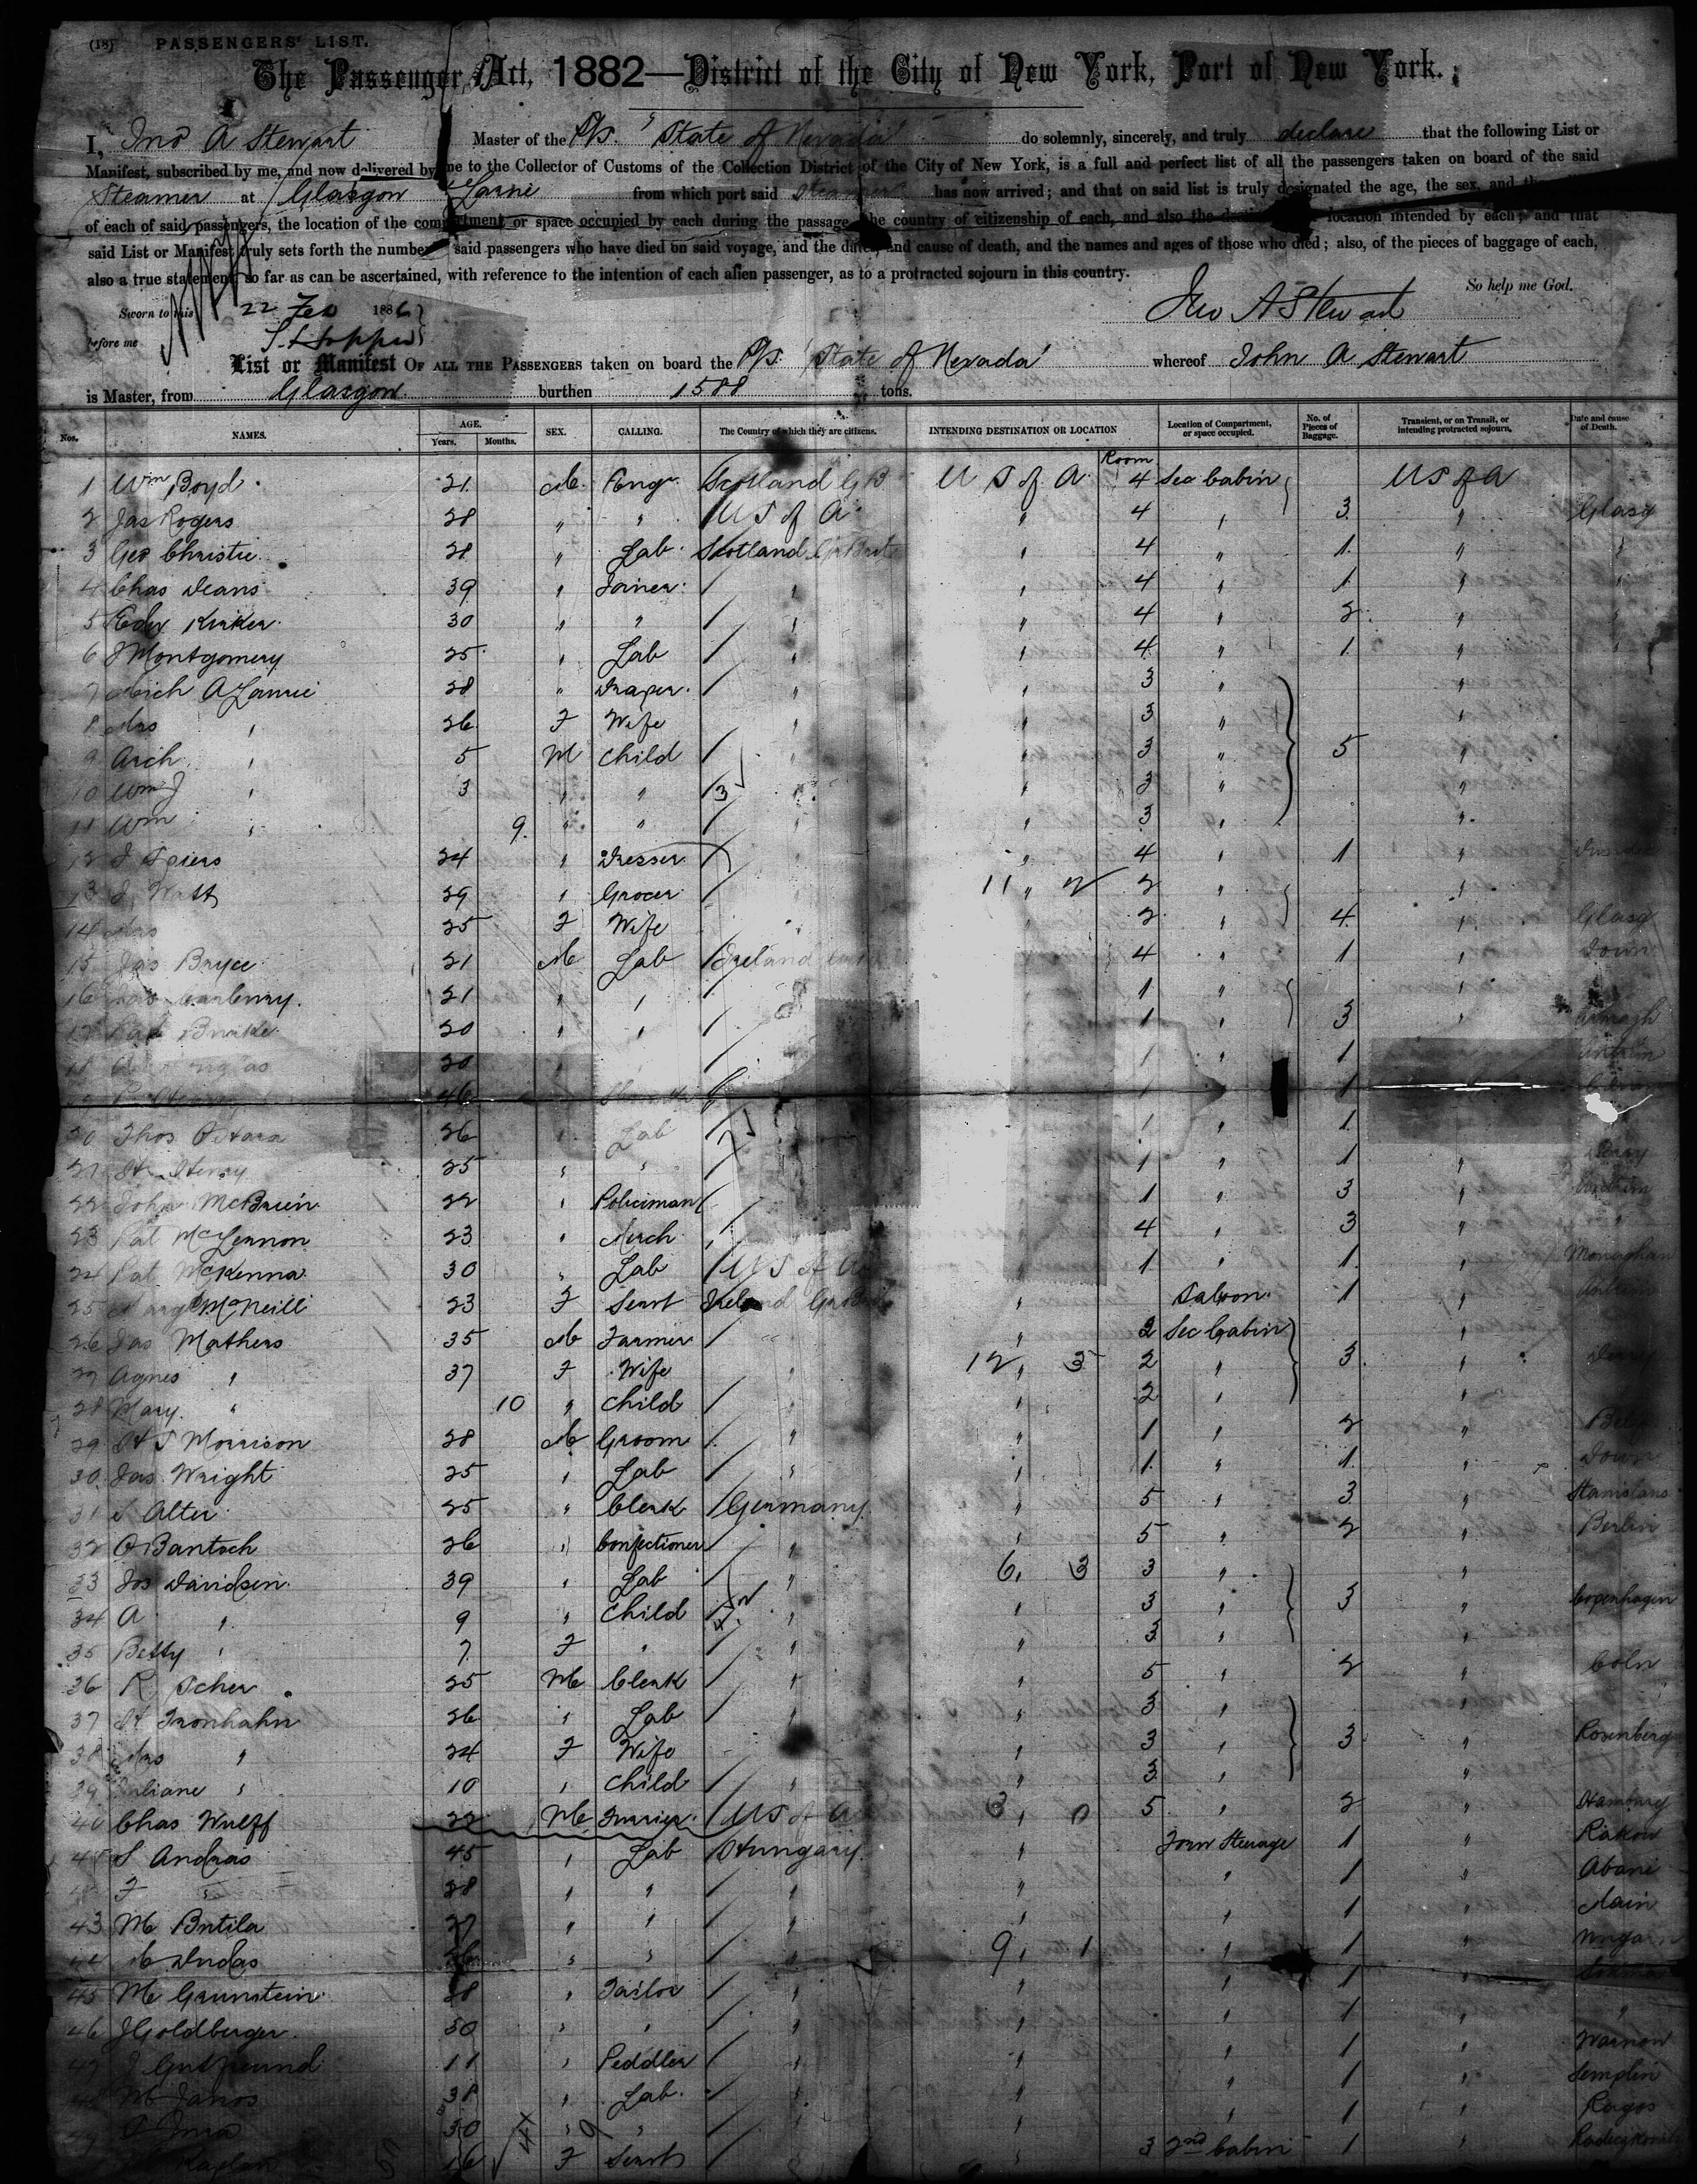 (13) PASSENGERS' LIST.
The Passenger Act, 1882—District of the City of New York, Port of New York.
I, Jno A Stewart Master of the S/S. "State of Nevada" do solemnly, sincerely, and truly declare that the following List or
Manifest, subscribed by me, and now delivered by me to the Collector of Customs of the Collection District of the City of New York, is a full and perfect list of all the passengers taken on board of the said
Steamer at Glasgow & Larne from which port said Steamer has now arrived; and that on said list is truly designated the age, the sex, and the
of each of said passengers, the location of the compartment or space occupied by each during the passage, the country of citizenship of each, and also the location intended by each; and that
said List or Manifest truly sets forth the number said passengers who have died on said voyage, and the dates and cause of death, and the names and ages of those who died; also, of the pieces of baggage of each,
also a true statement, so far as can be ascertained, with reference to the intention of each alien passenger, as to a protracted sojourn in this country.
So help me God.
Sworn to this 22 Feb 1886
Jno A Stewart
before me
List or Manifest OF ALL THE PASSENGERS taken on board the S/S. 'State of Nevada' whereof John A Stewart
is Master, from Glasgow burthen 1588 tons.
Nos. NAMES. AGE. Years. Months. SEX. CALLING. The Country of which they are citizens. INTENDING DESTINATION OR LOCATION Location of Compartment, or space occupied. No. of Pieces of Baggage. Transient, or on Transit, or intending protracted sojourn. Date and cause of Death.
Room
1 Wm Boyd 21 M Engr Scotland G B U S of A 4 Sec Cabin US of A
2 Jas Rogers 28 " " U S of A " 4 " 3 " Glasg
3 Geo Christie 28 " Lab Scotland Gr Brit " 4 " 1 " "
4 Chas Deans 39 " Joiner " " 4 " 1 " "
5 Kirker 30 " " " " 4 " 2 " "
6 J Montgomery 25 " Lab " " 4 " 1 " "
7 28 " Draper " " 3 " "
8 Mrs " 26 F Wife " " 3 " "
9 Arch " 5 M Child " " 3 " 5 "
10 Wm J " 3 " " 3 " " 3 " "
11 Wm " 9 " " " " 3 " "
12 24 " Dresser " 4 " 1 "
13 J Watt 29 " Grocer 11 " 2 2 " "
14 Mrs 25 F Wife 2 " 4 " Glasg
15 Jas Bryce 21 M Lab Ireland 4 " 1 " Down
16 21 " " 1 " "
17 20 " " 1 " 3 " Armagh
18 20 1 " 1 Antrim
19 46 1 1
20 Thos O'Hara 26 Lab 1 " 1
21 H Henry 25 " " 1 " 1 " Derry
22 John McBrien 22 " Policiman 1 " 3 " Antrim
23 Pat McLennon 23 " Merch 4 " 3 " "
24 Pat McKenna 30 " Lab U S of A 1 " 1 " Monaghan
25 Mary McNeill 23 F Servt Ireland " Saloon 1 " Antrim
26 Jas Mathers 35 M Farmer " 2 Sec Cabin "
27 Agnes " 37 F Wife " 12 " 3 2 " 3 " Derry
28 Mary " 10 " Child " " 2 " "
29 Morrison 28 M Groom " " 1 " 2 " Belf
30 Jas Wright 25 " Lab " " 1 " 1 " Down
31 Alter 25 " Clerk Germany " 5 " 3 " Stanislaus
32 O Bantoch 26 " Confectioner " " 5 " 2 " Berlin
33 Jos Davidsen 39 " Lab " 6 " 3 3 " "
34 A " 9 " Child " " 3 " 3 " Copenhagen
35 Betty " 7 F " " " 3 "
36 R Scher 25 M Clerk " " 5 " 2 " Coln
37 H Tronhahn 26 " Lab " 3 " "
38 Mrs " 24 F Wife " 3 " 3 " Rosenberg
39 Juliane " 10 " Child " " 3 " "
40 Chas Wulff 22 M Furrier US of A 3 " 0 5 " 2 " Hamburg
41 S Andras 45 " Lab Hungary " Forw Steerage 1 " Rakow
42 F " 28 " " " " " 1 " Abani
43 M Butila 27 " " " " " 1 "
44 M Dudas 26 " " " 9 " 1 " 1 " Ungarn
45 M Grunstein 28 " Tailor " " " 1 "
46 J Goldberger 30 " " " " " 1 " "
47 J Gutfreund 11 " Peddler " " " 1 " Warnow
48 M Janos 38 " Lab " " " 1 " Semplin
49 30 " " " " 1 " Ragos
Kaplan 16 F Servt " 3 2nd Cabin 1 "